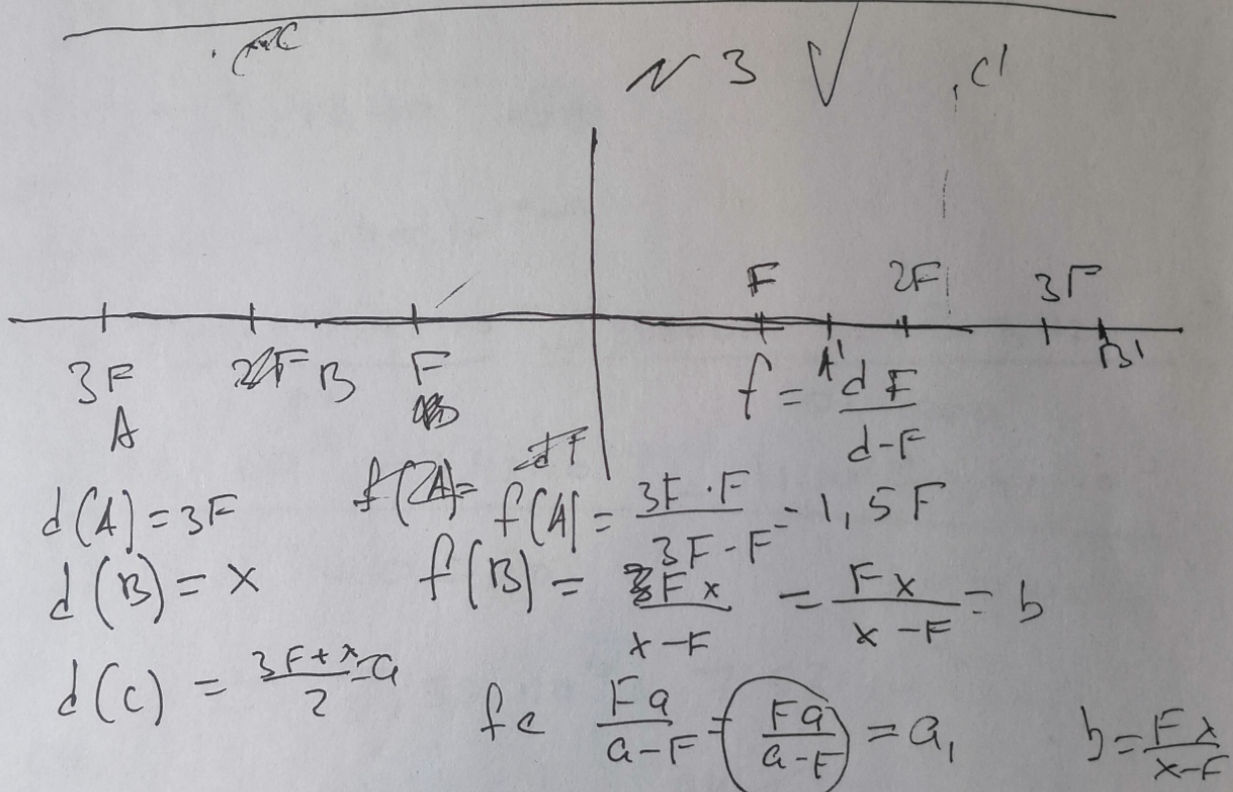 C
N 3 √
C'
F 2F 3F
3F 2F B F A' B'
A
f = dF / d-F
dF
d(A) = 3F f(A)= f(A) = 3F·F / 3F-F = 1,5F
d(B) = x f(B) = Fx / x-F = Fx / x-F = b
d(c) = 3F+x / 2 = a
fc Fa / a-F = Fa / a-F = a₁ b = Fx / x-F